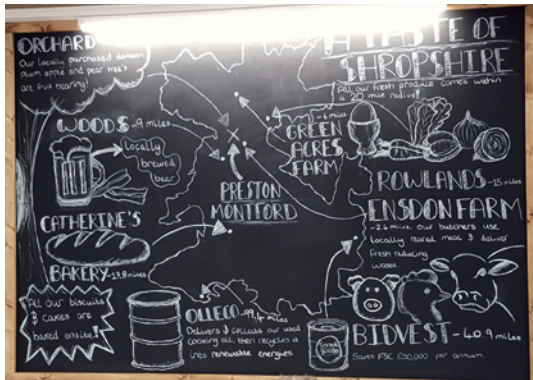 ORCHARD
Our locally purchased damson
plum apple and pear tree's
are fruit bearing!
A TASTE OF
SHROPSHIRE
All our fresh produce comes within
a 20 mile radius!
WOODS -9 miles
Locally
brewed
beer
-6 miles
GREEN
ACRES
FARM
PRESTON
MONTFORD
ROWLANDS -15 miles
ENSDON FARM
-2.6 miles. our butchers use
Locally reared meat & deliver
fresh reducing
waste
CATHERINE'S
BAKERY -17.8 miles
All our biscuits
& cakes are
baked onsite!
OLLECO -99.4 miles
Delivers & collects our used
cooking oil, then recycles it
into renewable energies
BIDVEST -40.9 miles
Saves FSC £50,000 per annum